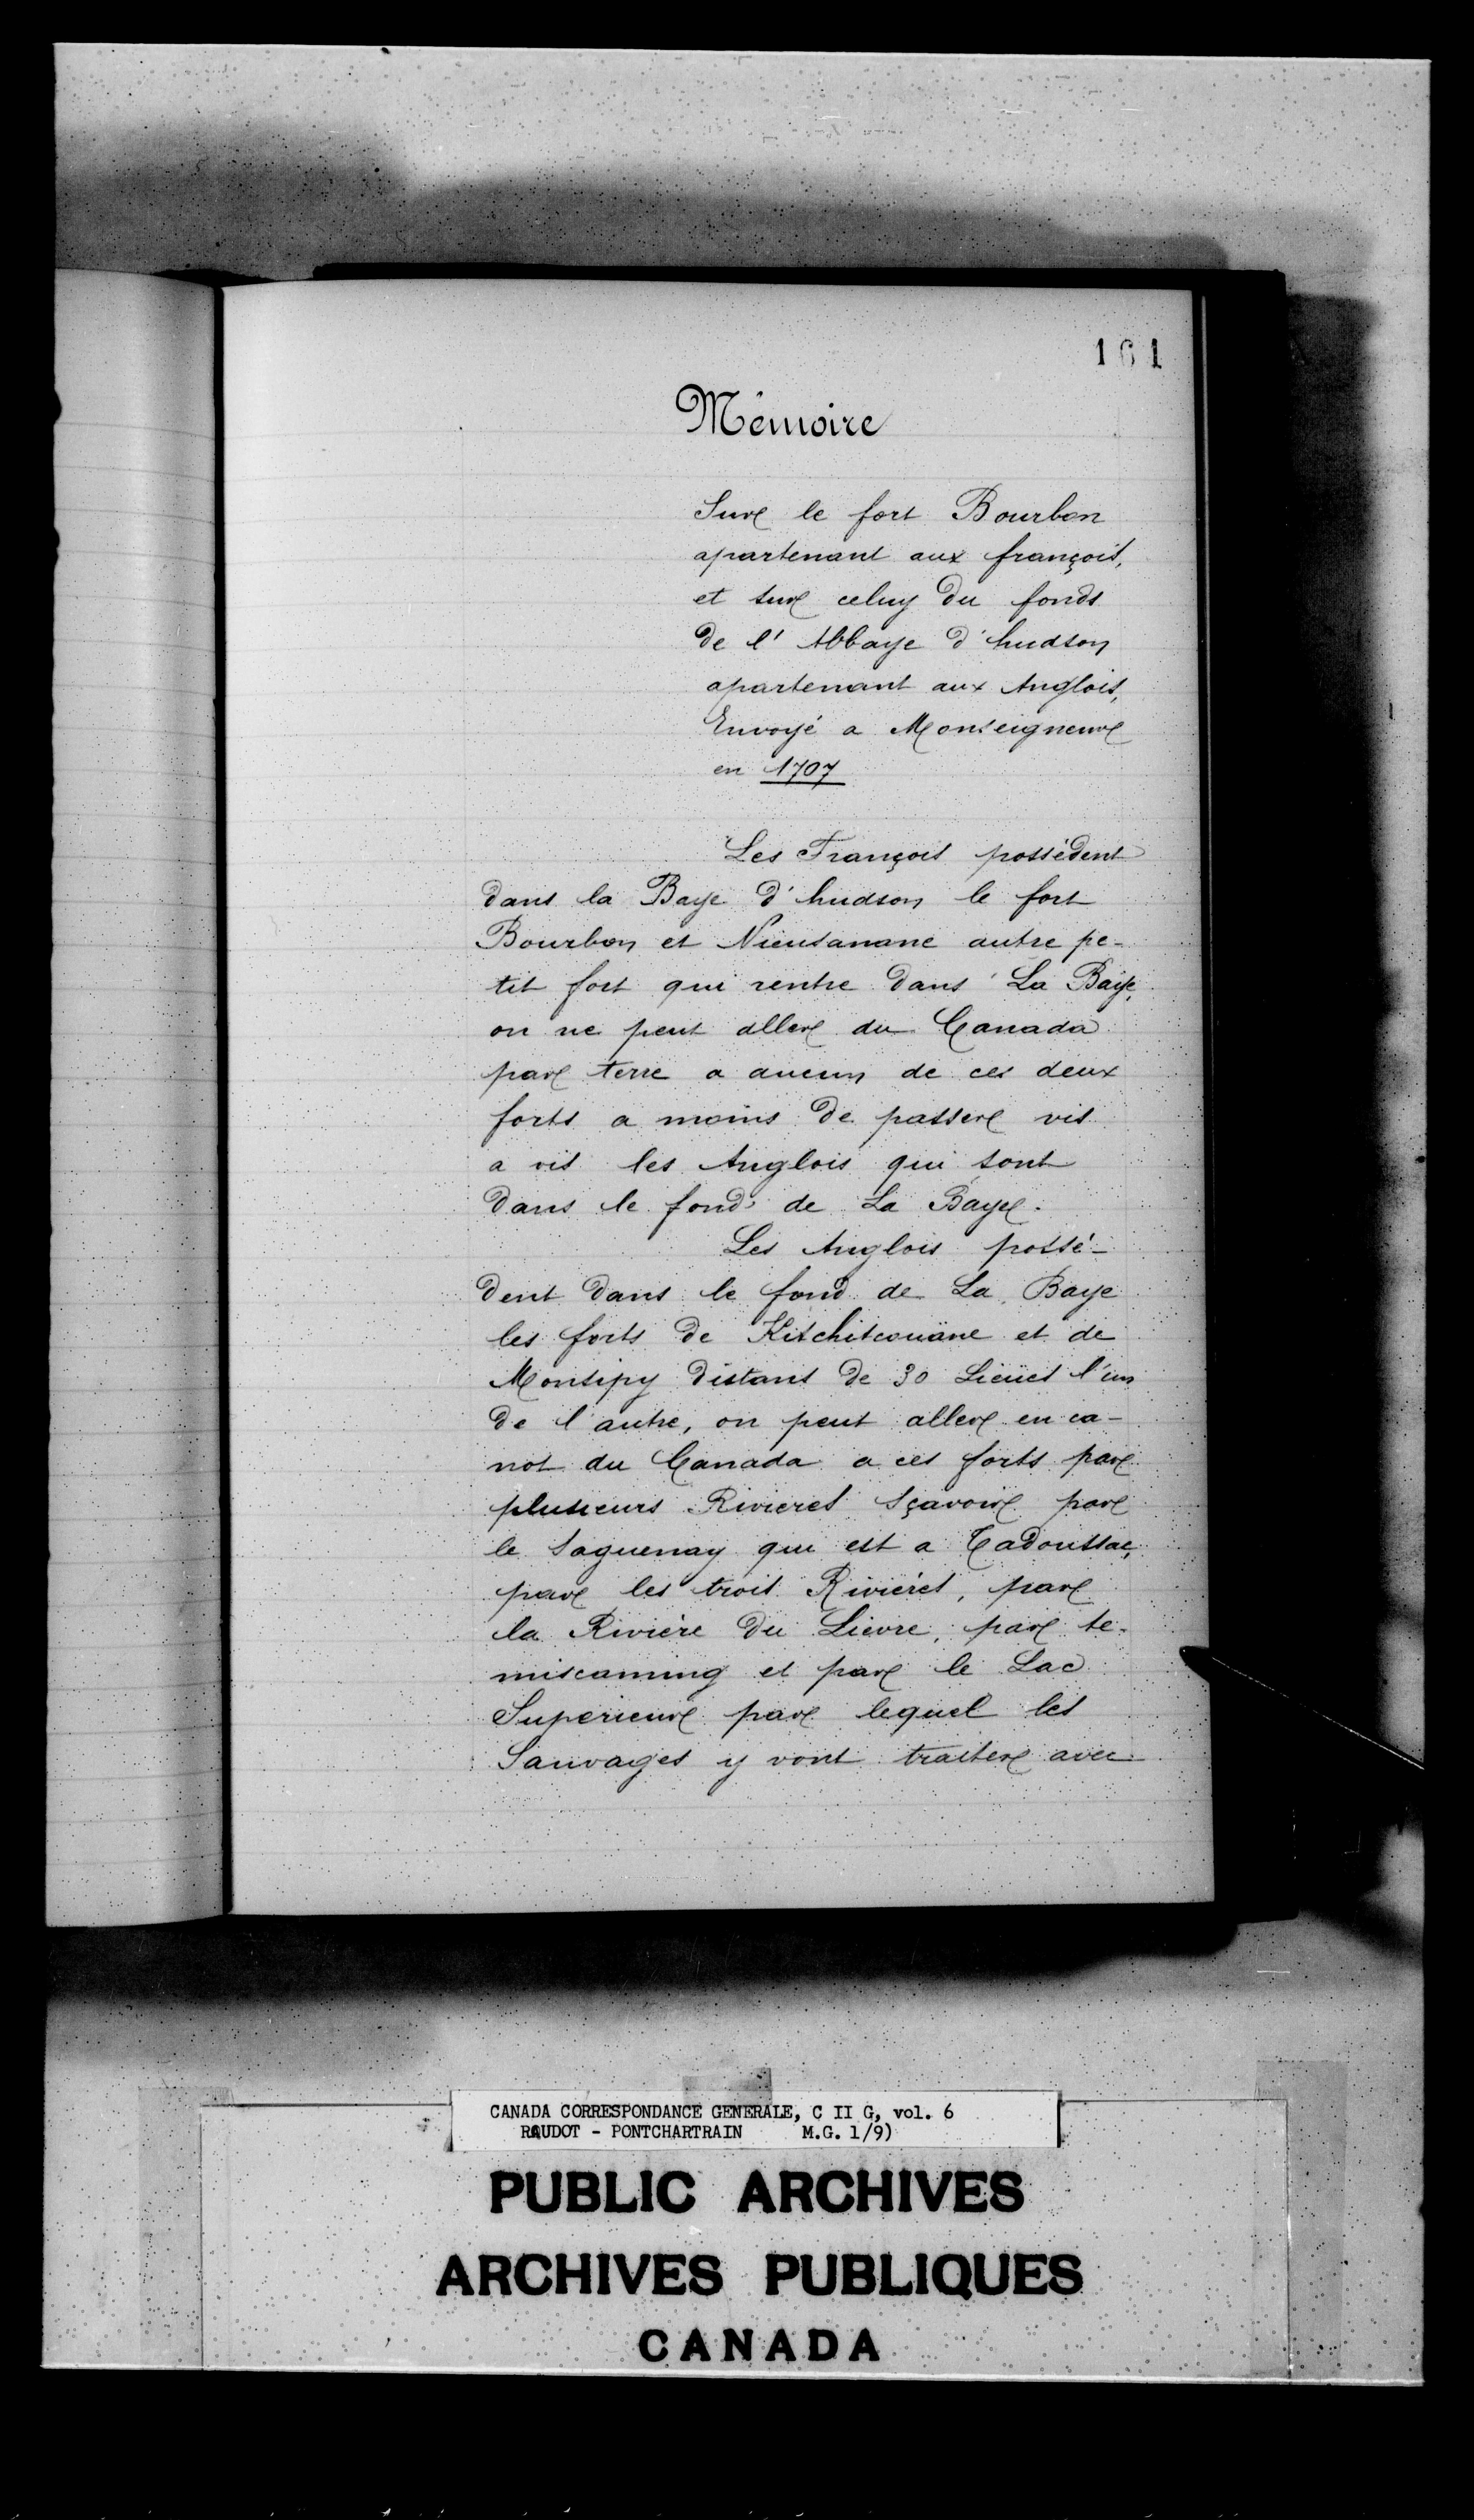 161
Mémoire
Sur le fort Bourbon
apartenant aux françois,
et sur celuy du fonds
de l'Abbaye d'hudson
apartenant aux Anglois,
Envoyé a Monseigneur
en 1707
Les François possédent
dans la Baye d'hudson le fort
Bourbon et Nieusanane autre pe-
tit fort qui rentre dans La Baye,
on ne peut aller du Canada
par terre a aucun de ces deux
forts a moins de passer vis
a vis les Anglois qui sont
dans le fond de La Baye.
Les Anglois possé-
dent dans le fond de La Baye
les forts de Kitchitcouäne et de
Monsipy distans de 30 Lieües l'un
de l'autre, on peut aller en ca-
not du Canada a ces forts par
plusieurs Rivieres sçavoir par
le Saguenay qui est a Tadoussac,
par les trois Riviéres, par
la Riviére du Lievre, par te-
miscaming et par le Lac
Superieur par lequel les
Sauvages y vont traiter avec
CANADA CORRESPONDANCE GENERALE, C II G, vol. 6
RAUDOT - PONTCHARTRAIN M.G. 1/9)
PUBLIC ARCHIVES
ARCHIVES PUBLIQUES
CANADA